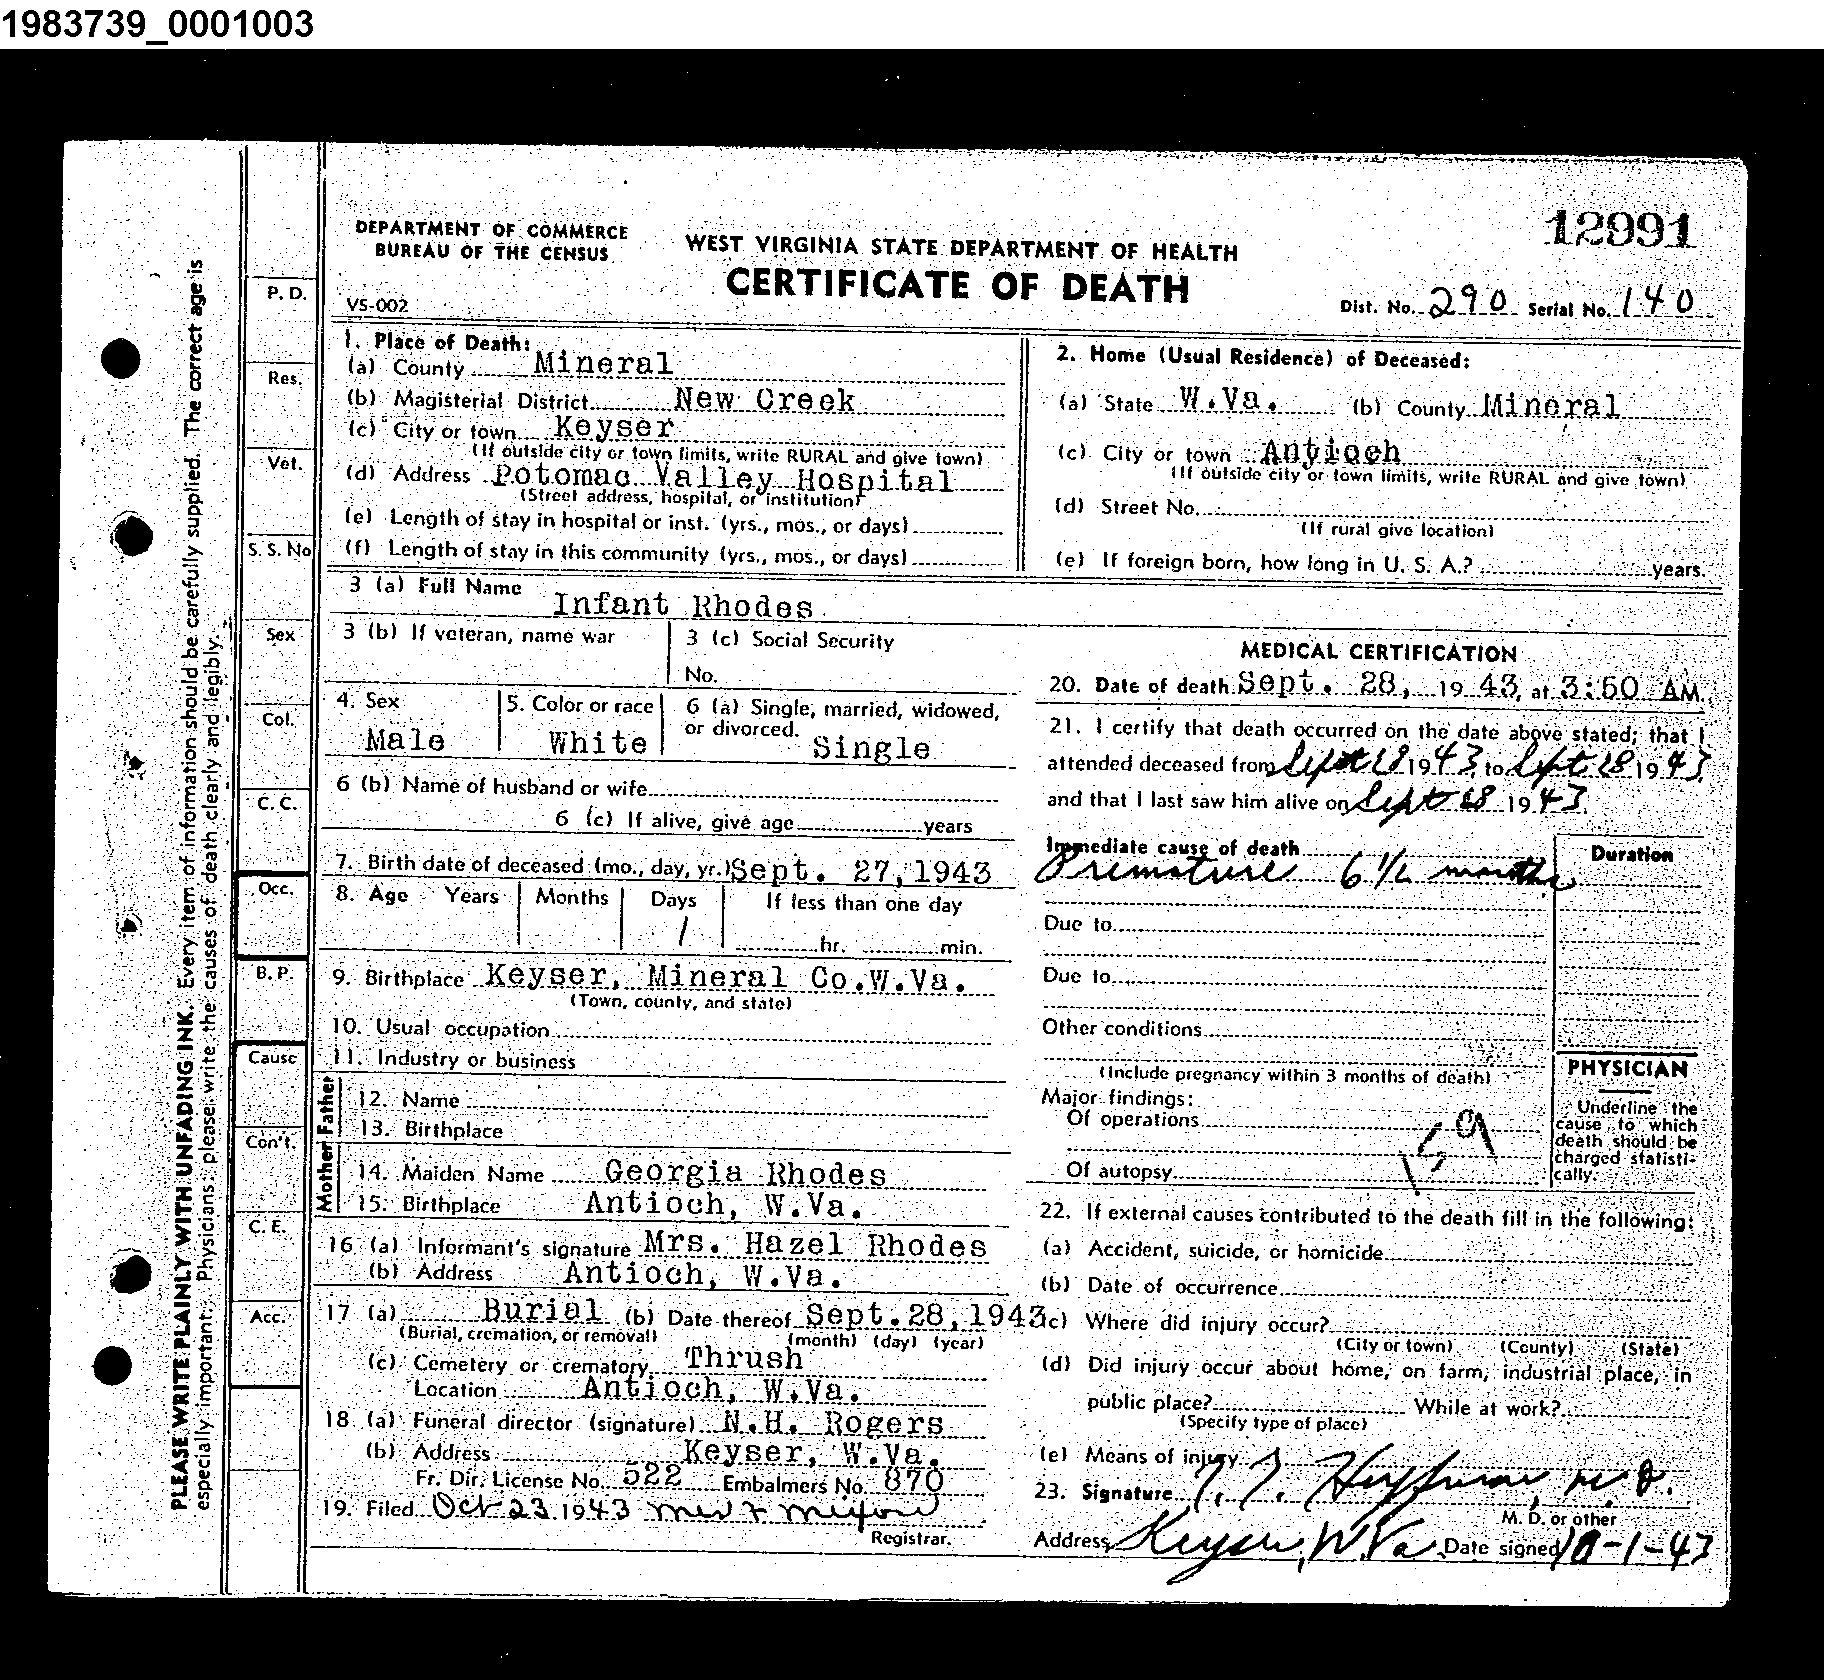 1983739_0001003
12991
DEPARTMENT OF COMMERCE
BUREAU OF THE CENSUS
WEST VIRGINIA STATE DEPARTMENT OF HEALTH
CERTIFICATE OF DEATH
VS-002
Dist. No. 290 Serial No. 140
PLEASE WRITE PLAINLY WITH UNFADING INK. Every item of information should be carefully supplied. The correct age is
especially important. Physicians: please write the causes of death clearly and legibly.
P. D.
Res.
Vet.
S. S. No
Sex
Col.
C. C.
Occ.
B. P.
Cause
Con't.
C. E.
Acc.
1. Place of Death:
(a) County Mineral
(b) Magisterial District New Creek
(c) City or town Keyser
(If outside city or town limits, write RURAL and give town)
(d) Address Potomac Valley Hospital
(Street address, hospital, or institution)
(e) Length of stay in hospital or inst. (yrs., mos., or days)
(f) Length of stay in this community (yrs., mos., or days)
2. Home (Usual Residence) of Deceased:
(a) State W.Va. (b) County Mineral
(c) City or town Antioch
(If outside city or town limits, write RURAL and give town)
(d) Street No.
(If rural give location)
(e) If foreign born, how long in U. S. A.? years.
3 (a) Full Name Infant Rhodes
3 (b) If veteran, name war
3 (c) Social Security
No.
4. Sex
Male
5. Color or race
White
6 (a) Single, married, widowed,
or divorced. Single
6 (b) Name of husband or wife
6 (c) If alive, give age years
7. Birth date of deceased (mo., day, yr.) Sept. 27, 1943
8. Age Years Months Days If less than one day
1 hr. min.
9. Birthplace Keyser, Mineral Co.W.Va.
(Town, county, and state)
10. Usual occupation
11. Industry or business
Father
12. Name
13. Birthplace
Mother
14. Maiden Name Georgia Rhodes
15. Birthplace Antioch, W.Va.
16 (a) Informant's signature Mrs. Hazel Rhodes
(b) Address Antioch, W.Va.
17 (a) Burial (b) Date thereof Sept.28,1943
(Burial, cremation, or removal) (month) (day) (year)
(c) Cemetery or crematory Thrush
Location Antioch, W.Va.
18 (a) Funeral director (signature) N.H. Rogers
(b) Address Keyser, W.Va.
Fr. Dir. License No. 522 Embalmers No. 870
19. Filed Oct 23 1943
Registrar.
MEDICAL CERTIFICATION
20. Date of death Sept. 28, 1943, at 3:50 AM
21. I certify that death occurred on the date above stated; that I
attended deceased from Sept 28 1943, to Sept 28 1943
and that I last saw him alive on Sept 28 1943
Immediate cause of death
Premature 6 1/2 months
Duration
Due to
Due to
Other conditions
(Include pregnancy within 3 months of death)
Major findings:
Of operations
159
Of autopsy
PHYSICIAN
Underline the
cause to which
death should be
charged statisti-
cally.
22. If external causes contributed to the death fill in the following:
(a) Accident, suicide, or homicide
(b) Date of occurrence
(c) Where did injury occur?
(City or town) (County) (State)
(d) Did injury occur about home, on farm, industrial place, in
public place? While at work?
(Specify type of place)
(e) Means of injury
23. Signature M.D.
M. D. or other
Address Keyser, W.Va Date signed 10-1-43